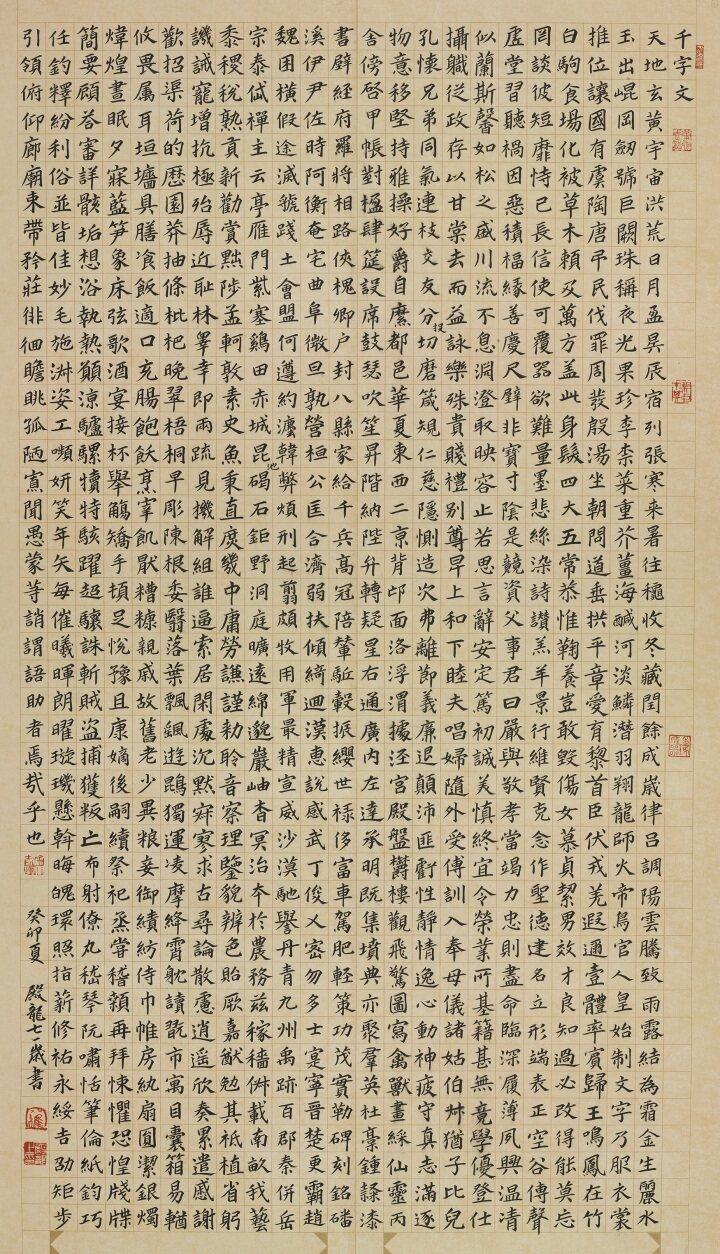 千字文
天地玄黃宇宙洪荒日月盈昃辰宿列張寒來暑往穐收冬藏閏餘成歲律呂調陽雲騰致雨露結為霜金生麗水
玉出崐岡劒號巨闕珠稱夜光果珍李柰菜重芥薑海鹹河淡鱗潛羽翔龍師火帝鳥官人皇始制文字乃服衣裳
推位讓國有虞陶唐弔民伐罪周發殷湯坐朝問道垂拱平章愛育黎首臣伏戎羌遐邇壹體率賓歸王鳴鳳在竹
白駒食場化被草木賴及萬方蓋此身髮四大五常恭惟鞠養豈敢毀傷女慕貞絜男效才良知過必改得能莫忘
罔談彼短靡恃己長信使可覆器欲難量墨悲絲染詩讚羔羊景行維賢克念作聖德建名立形端表正空谷傳聲
虛堂習聽禍因惡積福緣善慶尺璧非寶寸陰是競資父事君曰嚴與敬孝當竭力忠則盡命臨深履薄夙興溫凊
似蘭斯馨如松之盛川流不息淵澄取映容止若思言辭安定篤初誠美慎終宜令榮業所基籍甚無竟學優登仕
攝職從政存以甘棠去而益詠樂殊貴賤禮別尊卑上和下睦夫唱婦隨外受傅訓入奉母儀諸姑伯叔猶子比兒
孔懷兄弟同氣連枝交友投分切磨箴規仁慈隱惻造次弗離節義廉退顛沛匪虧性靜情逸心動神疲守真志滿逐
物意移堅持雅操好爵自縻都邑華夏東西二京背邙面洛浮渭據涇宮殿盤鬱樓觀飛驚圖寫禽獸畫綵仙靈丙
舍傍啓甲帳對楹肆筵設席鼓瑟吹笙昇階納陛弁轉疑星右通廣內左達承明既集墳典亦聚羣英杜稾鍾隸漆
書壁經府羅將相路俠槐卿戶封八縣家給千兵高冠陪輦驅轂振纓世祿侈富車駕肥輕策功茂實勒碑刻銘磻
溪伊尹佐時阿衡奄宅曲阜微旦孰營桓公匡合濟弱扶傾綺迴漢惠說感武丁俊乂密勿多士寔寧晉楚更霸趙
魏困橫假途滅虢踐土會盟何遵約法韓弊煩刑起翦頗牧用軍最精宣威沙漠馳譽丹青九州禹跡百郡秦併岳
宗泰岱禪主云亭雁門紫塞鷄田赤城昆池碣石鉅野洞庭曠遠綿邈巖岫杳冥治本於農務茲稼穡俶載南畝我藝
黍稷稅熟貢新勸賞黜陟孟軻敦素史魚秉直庶幾中庸勞謙謹勑聆音察理鑒貌辨色貽厥嘉猷勉其祗植省躬
譏誡寵增抗極殆辱近恥林皋幸即兩疏見機解組誰逼索居閑處沉默寂寥求古尋論散慮逍遙欣奏累遣慼謝
歡招渠荷的歷園莽抽條枇杷晚翠梧桐早彫陳根委翳落葉飄颻遊鵾獨運凌摩絳霄耽讀翫市寓目囊箱易輶
攸畏屬耳垣墻具膳飡飯適口充腸飽飫烹宰飢厭糟糠親戚故舊老少異粮妾御績紡侍巾帷房紈扇圓潔銀燭
煒煌晝眠夕寐藍笋象床弦歌酒宴接杯舉觴矯手頓足悅豫且康嫡後嗣續祭祀烝嘗稽顙再拜悚懼恐惶牋牒
簡要顧答審詳骸垢想浴執熱願涼驢騾犢特駭躍超驤誅斬賊盜捕獲叛亡布射僚丸嵇琴阮嘯恬筆倫紙鈞巧
任釣釋紛利俗並皆佳妙毛施淑姿工嚬妍笑年矢每催曦暉朗曜璇璣懸斡晦魄環照指薪修祜永綏吉劭矩步
引領俯仰廊廟束帶矜莊徘徊瞻眺孤陋寡聞愚蒙等誚謂語助者焉哉乎也
癸卯夏 殷龍七一歲書